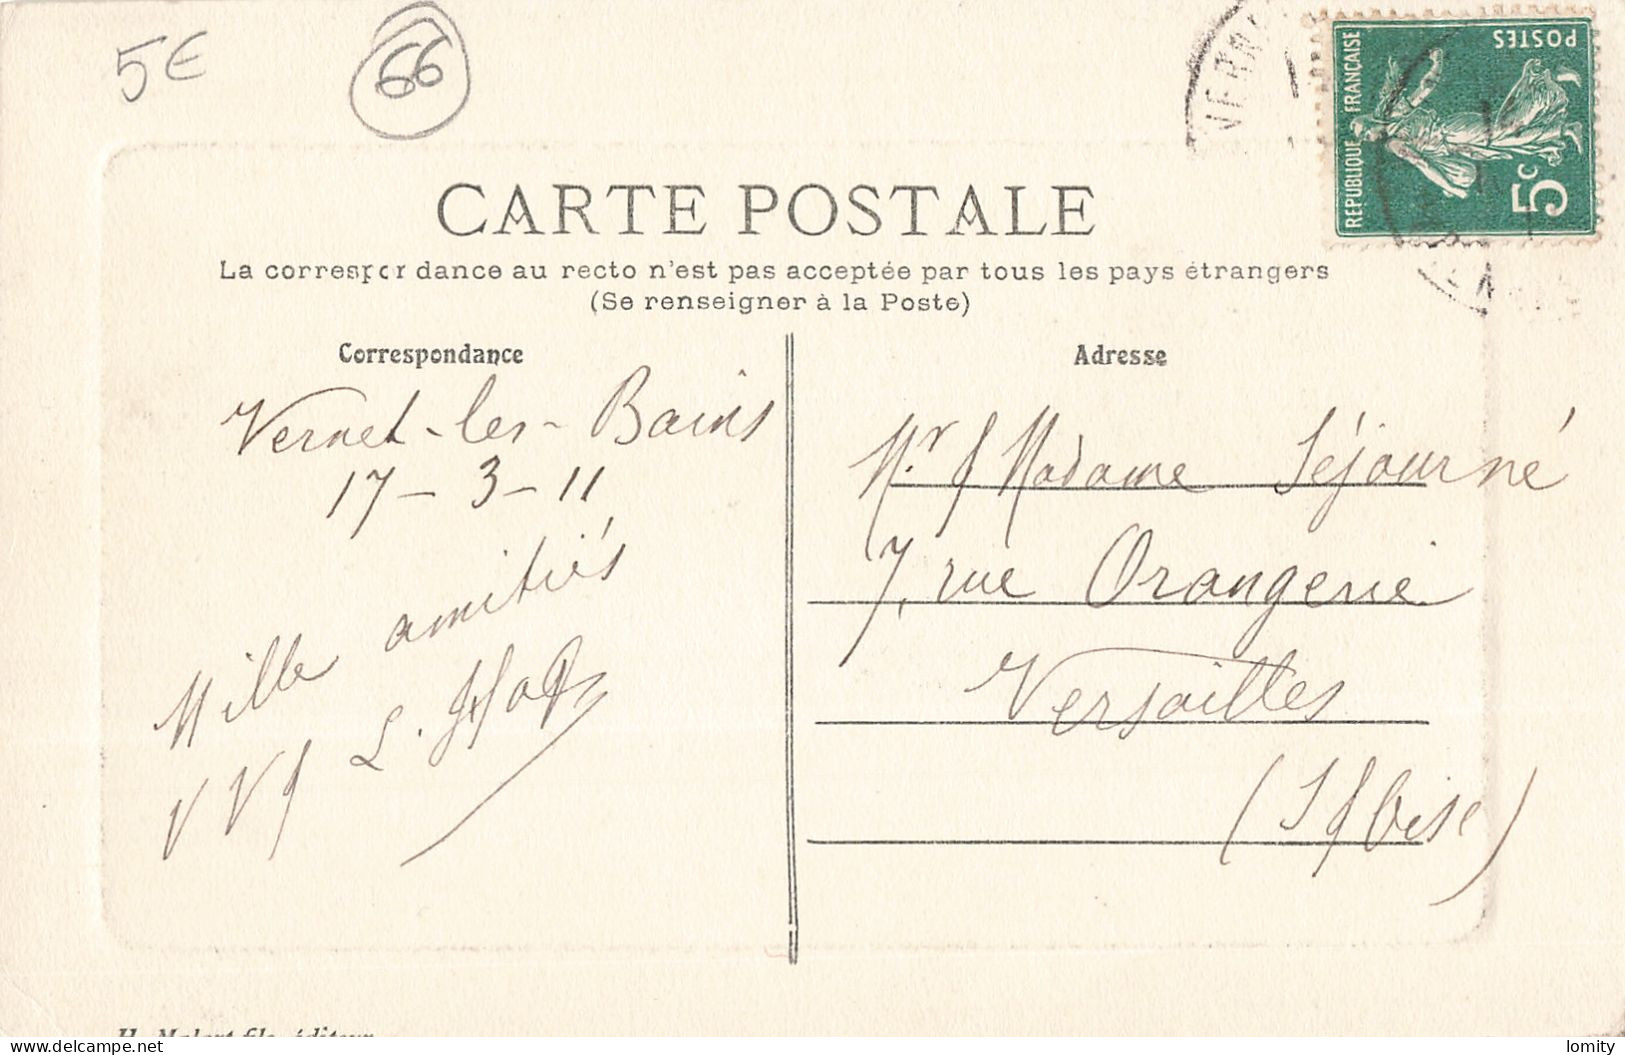 5€
66
REPUBLIQUE FRANÇAISE
POSTES
5c
CARTE POSTALE
La correspondance au recto n'est pas acceptée par tous les pays étrangers
(Se renseigner à la Poste)
Correspondance
Vernet-les-Bains
17-3-11
Mille amitiés
Adresse
Mr & Madame Séjourné
7, rue Orangerie
Versailles
(S & Oise)
fils, éditeur
lomity